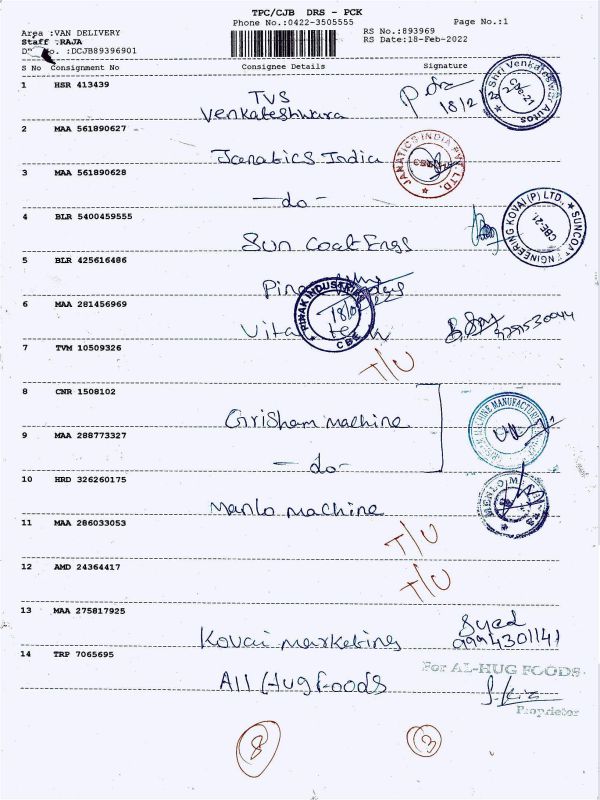 TPC/CJB DRS - PCK
Phone No.:0422-3505555
Page No.:1
Area :VAN DELIVERY
RS No.:893969
Staff :RAJA
RS Date:18-Feb-2022
No. :DCJB89396901
S No Consignment No Consignee Details Signature
1 HSR 413439
TVS
Venkateshwara
18/2
Shri Venkateswara Autos
CBE-21
2 MAA 561890627
Janatics India
JANATICS INDIA PVT LTD.
3 MAA 561890628
-do-
4 BLR 5400459555
Sun Coat Engs
SUNCOAT ENGINEERING KOVAI (P) LTD.,
CBE-21.
5 BLR 425616486
PINAK INDUSTRIES
CBE
6 MAA 281456969
Vita
7 TVM 10509326
T/U
8 CNR 1508102
Grisham machine
MACHINE MANUFACTURI
9 MAA 288773327
-do-
10 HRD 326260175
Manlo machine
MENLO
11 MAA 286033053
T/U
12 AMD 24364417
T/U
13 MAA 275817925
Kovai marketing
Syed
9994301141
14 TRP 7065695
All Hug Foods
For AL-HUG FOODS
Proprietor
8
3